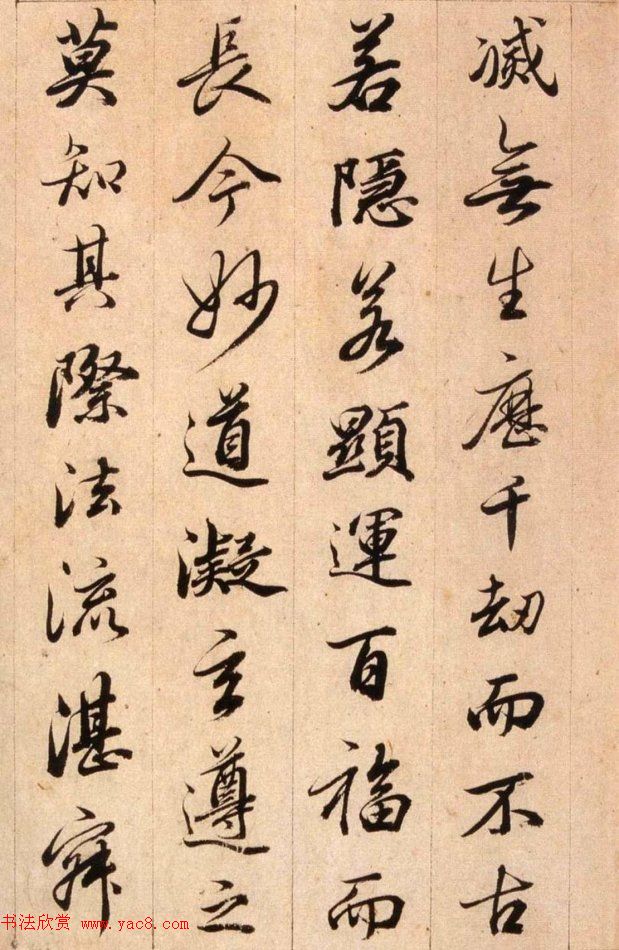 滅無生歷千劫而不古
若隱若顯運百福而
長今妙道凝玄遵之
莫知其際法流湛寂
书法欣赏 www.yac8.com